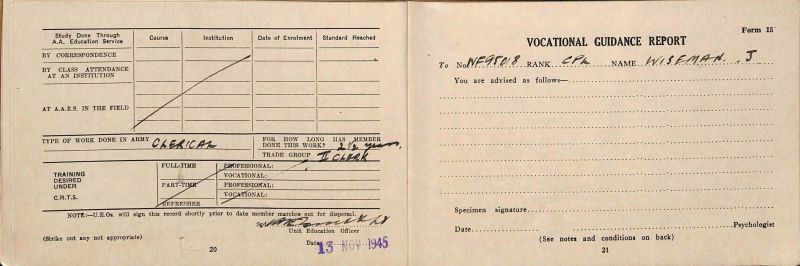 Study Done Through A.A. Education Service Course Institution Date of Enrolment Standard Reached
BY CORRESPONDENCE
BY CLASS ATTENDANCE AT AN INSTITUTION
AT A.A.E.S. IN THE FIELD
TYPE OF WORK DONE IN ARMY CLERICAL
FOR HOW LONG HAS MEMBER DONE THIS WORK? 2½ years.
TRADE GROUP II CLERK
TRAINING DESIRED UNDER C.R.T.S.
FULL-TIME PROFESSIONAL:
VOCATIONAL:
PART-TIME PROFESSIONAL:
VOCATIONAL:
REFRESHER
NOTE:—U.E.Os. will sign this record shortly prior to date member marches out for dispersal.
Sgd.
Unit Education Officer
(Strike out any not appropriate)
Date 13 NOV 1945
20
Form 15
VOCATIONAL GUIDANCE REPORT
To No. NF95018 RANK CPL NAME WISEMAN. J
You are advised as follows—
Specimen signature
Date Psychologist
(See notes and conditions on back)
21